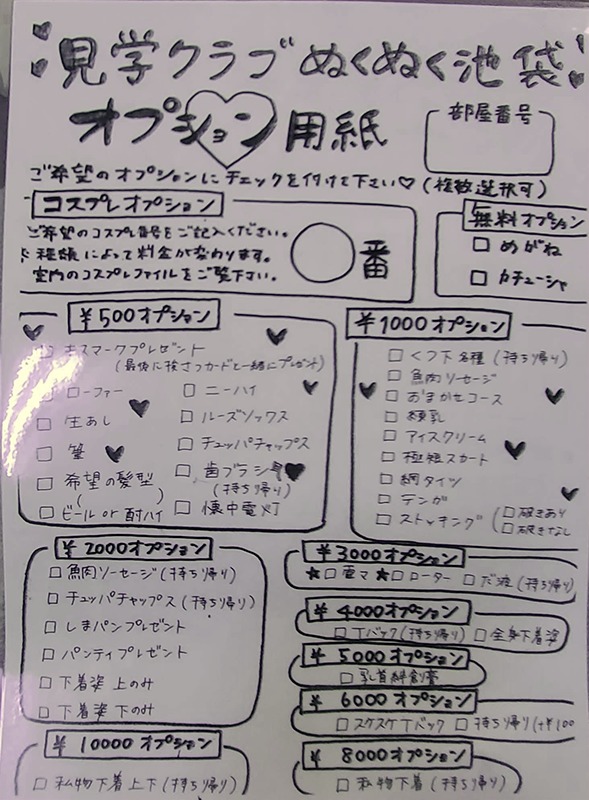 見学クラブぬくぬく池袋
オプション用紙
部屋番号
ご希望のオプションにチェックを付けて下さい♡(複数選択可)
コスプレオプション
ご希望のコスプレ番号をご記入ください。
※種類によって料金が変わります。
室内のコスプレファイルをご覧下さい。
番
無料オプション
□ めがね
□ カチューシャ
¥500オプション
□ キスマークプレゼント
(最後に検さつカードと一緒にプレゼント)
□ ローファー
□ 生あし
□ 筆
□ 希望の髪型
( )
□ ビール or 酎ハイ
□ ニーハイ
□ ルーズソックス
□ チュッパチャップス
□ 歯ブラシ
(持ち帰り)
□ 懐中電灯
¥1000オプション
□ くつ下各種(持ち帰り)
□ 魚肉ソーセージ
□ おまかせコース
□ 練乳
□ アイスクリーム
□ 極短スカート
□ 網タイツ
□ テンガ
□ ストッキング(□破きあり
□破きなし
¥2000オプション
□ 魚肉ソーセージ(持ち帰り)
□ チュッパチャップス(持ち帰り)
□ しまパンプレゼント
□ パンティプレゼント
□ 下着姿 上のみ
□ 下着姿 下のみ
¥3000オプション
★□電マ ★□ローター □だ液(持ち帰り)
¥4000オプション
□Tバック(持ち帰り) □全身下着姿
¥5000オプション
□乳首絆創膏
¥6000オプション
□スケスケTバック □持ち帰り(+¥100
¥10000オプション
□ 私物下着上下(持ち帰り)
¥8000オプション
□ 私物下着(持ち帰り)